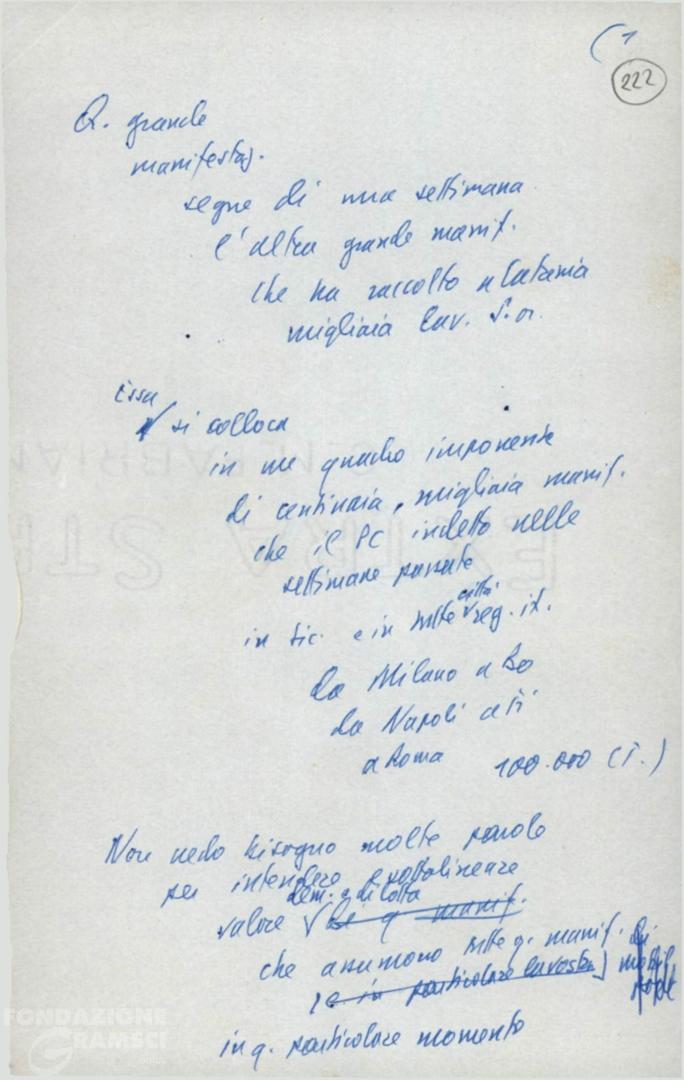 (1
222
Q. grande
manifestaz.
segue di una settimana
l'altra grande manif.
che ha raccolto a Catania
migliaia lav. S. or.
Essa
si colloca
in un quadro imponente
di centinaia, migliaia manif.
che il PC indetto nelle
settimane passate
in Sic. e in tutte città reg. it.
da Milano a Bo
da Napoli a Fi
a Roma 100.000 (T.)
Non vedo bisogno molte parole
per intendere e sottolineare
dem. e di lotta
valore di q. manif.
che assumono tutte q. manif. di
(e in particolare la vostra)
in q. particolare momento
FONDAZIONE
GRAMSCI